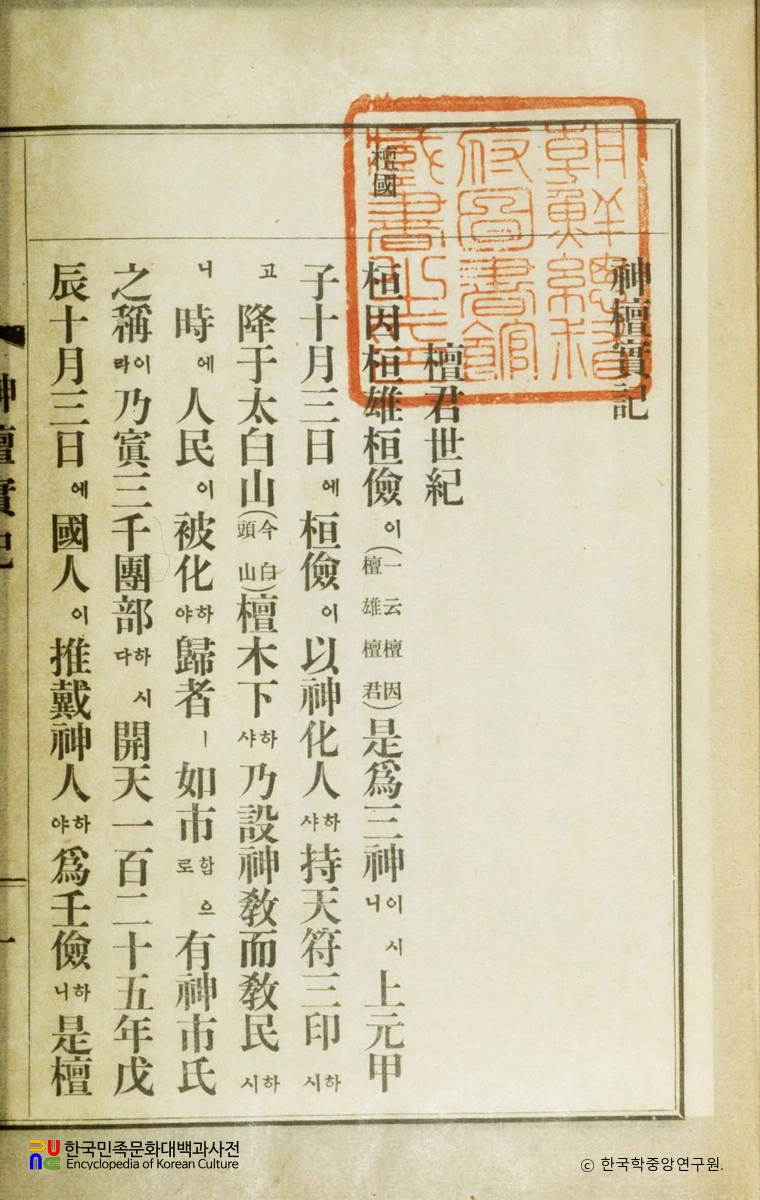 朝鮮總督
府圖書館
藏書之印
神檀實記
檀君世紀
檀國
桓因桓雄桓儉이(一云檀因檀雄檀君)是爲三神이시니上元甲
子十月三日에桓儉이以神化人하샤持天符三印하시
고降于太白山(今白頭山)檀木下하샤乃設神敎而敎民하시
니時에人民이被化하야歸者ㅣ如市함으로有神市氏
之稱이라乃寘三千團部하시다開天一百二十五年戊
辰十月三日에國人이推戴神人하야爲壬儉하니是檀
神檀實記
一
한국민족문화대백과사전
Encyclopedia of Korean Culture
ⓒ 한국학중앙연구원.